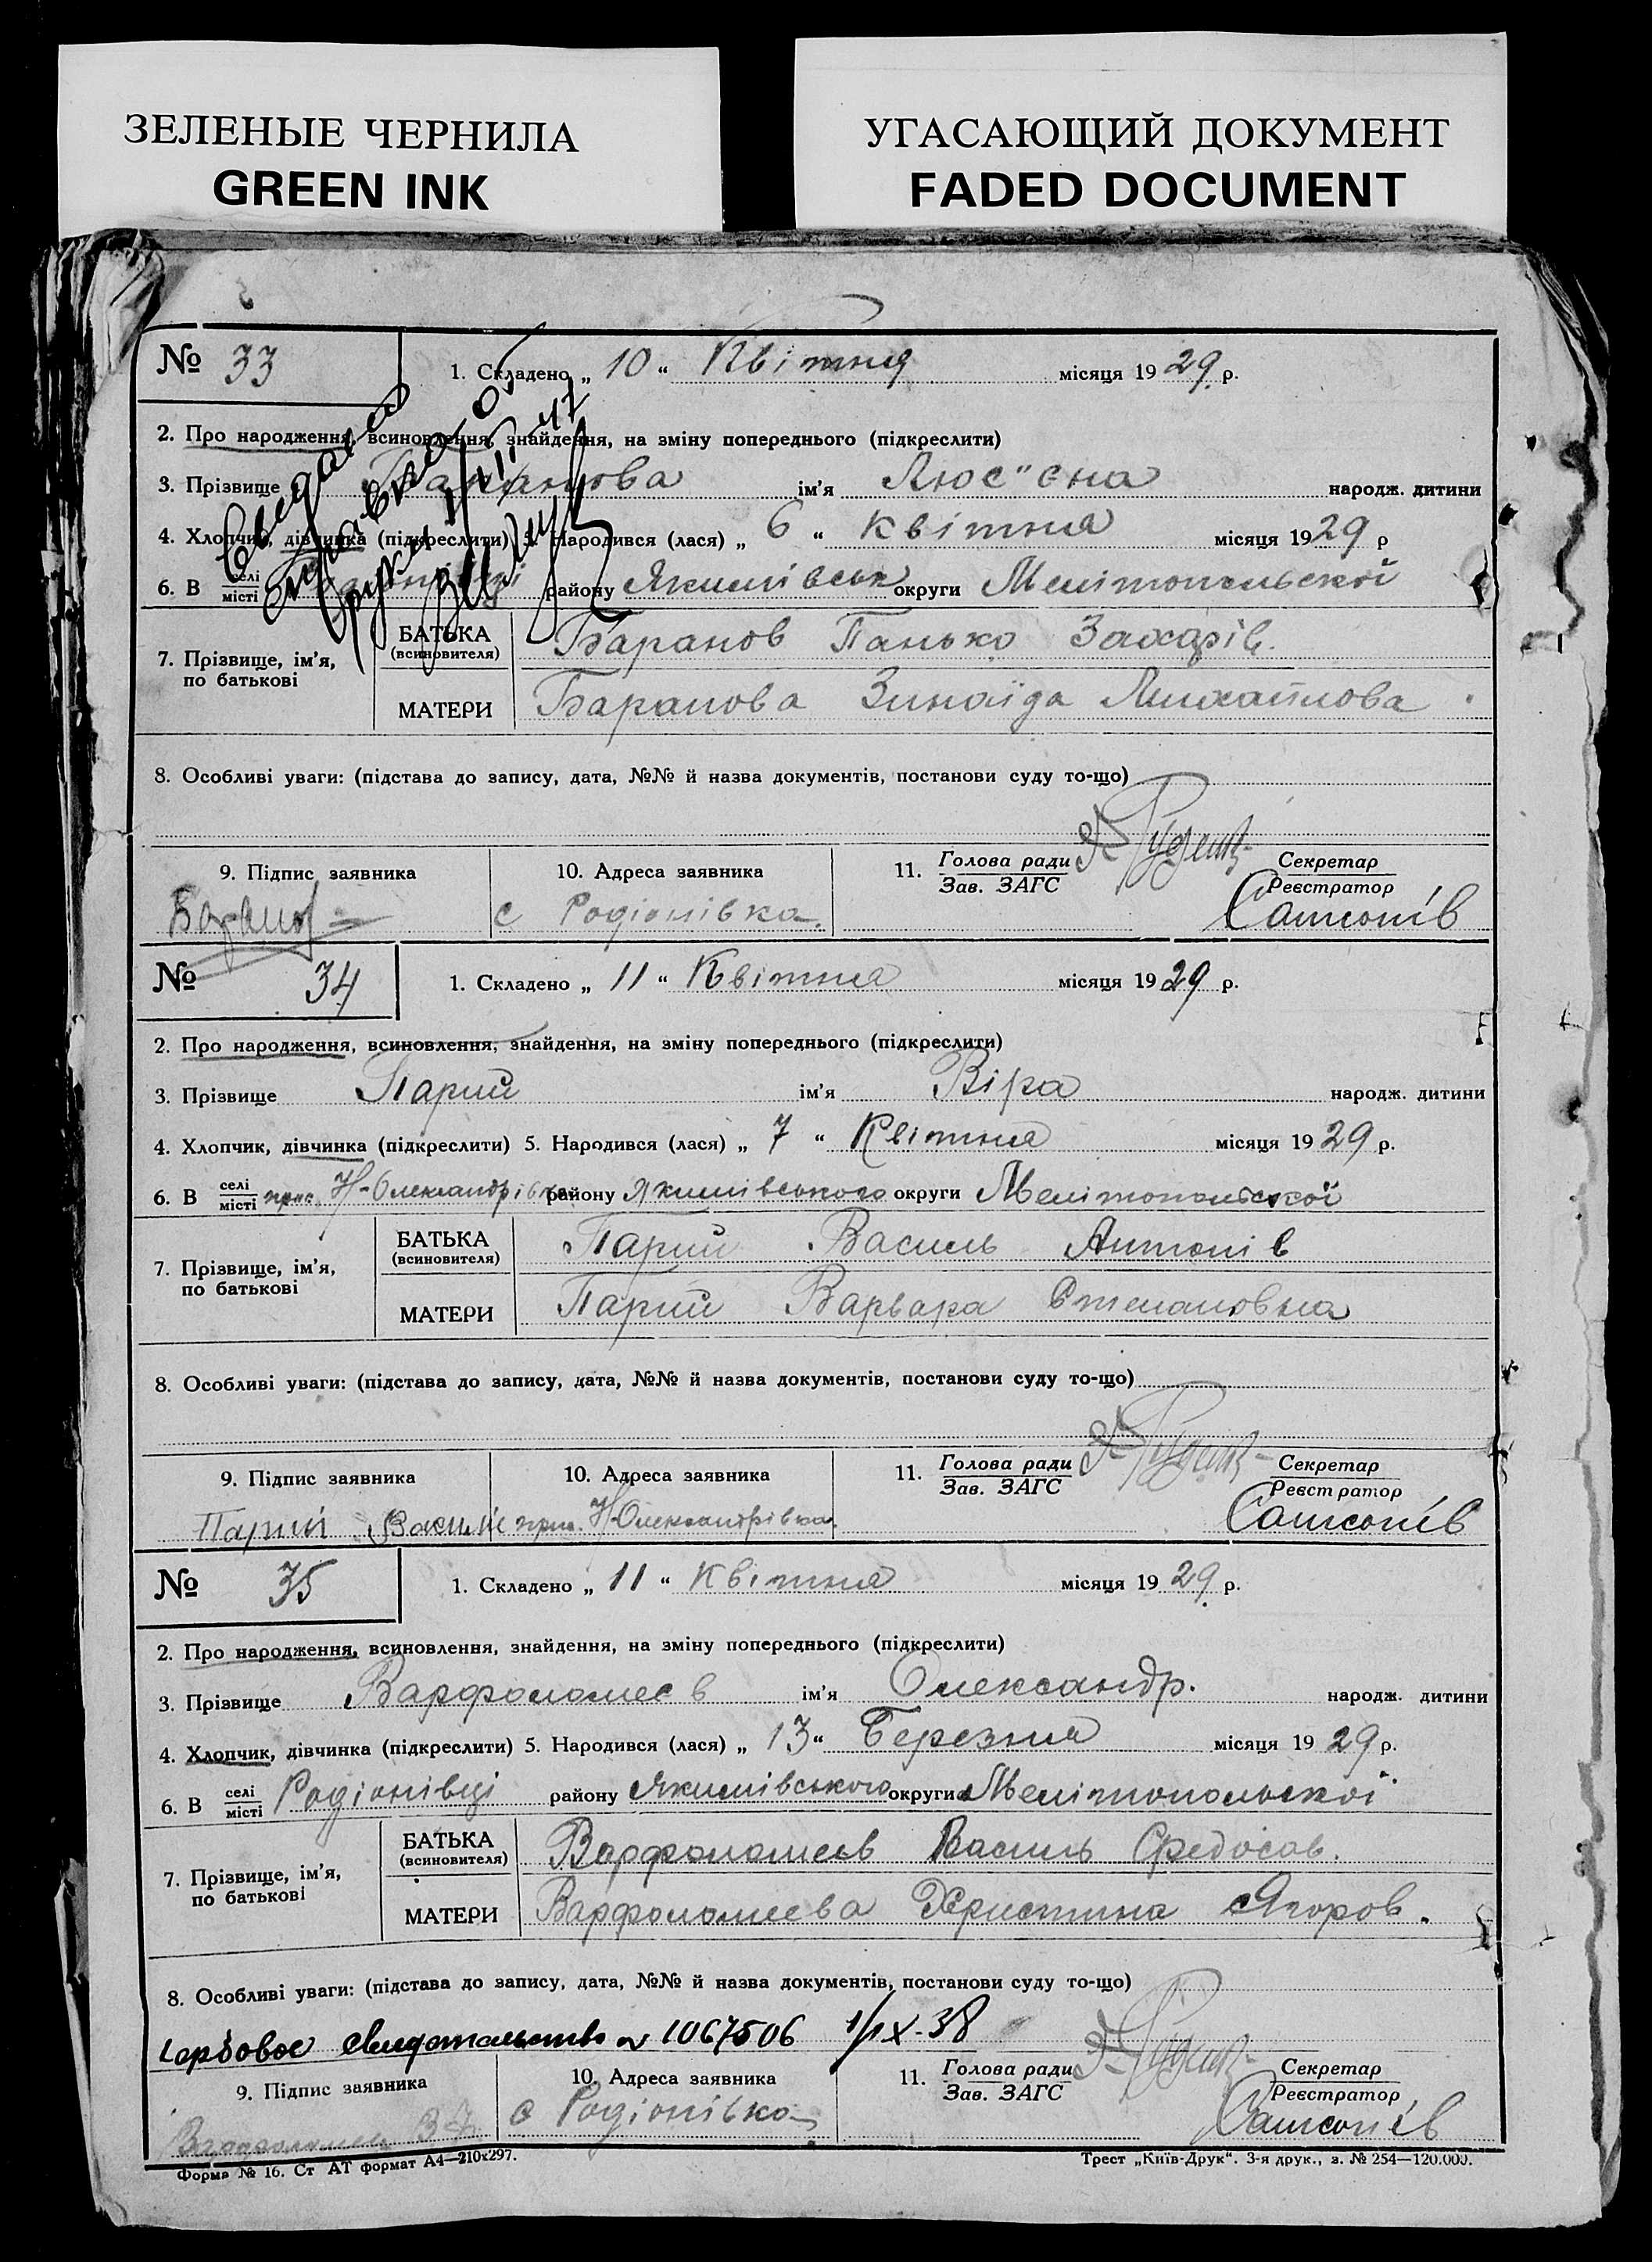 ЗЕЛЕНЫЕ ЧЕРНИЛА
GREEN INK
УГАСАЮЩИЙ ДОКУМЕНТ
FADED DOCUMENT
№ 33
1. Складено „ 10 “ Квітня місяця 1929 р.
2. Про народження, всиновлення, знайдення, на зміну попереднього (підкреслити)
3. Прізвище Баранова ім'я Люс"єна народж. дитини
4. Хлопчик, дівчинка (підкреслити) 5. Народився (лася) „ 6 “ Квітня місяця 1929 р
6. В селі місті району Якимівськ округи Мелітопольскої
7. Прізвище, ім'я, по батькові
БАТЬКА (всиновителя) Баранов Панько Захарів.
МАТЕРИ Баранова Зинаїда Михайлова
8. Особливі уваги: (підстава до запису, дата, №№ й назва документів, постанови суду то-що)
9. Підпис заявника 10. Адреса заявника 11. Голова ради Зав. ЗАГС Секретар Реєстратор
Баранов с Родіонівка. Самсонів
№ 34
1. Складено „ 11 “ Квітня місяця 1929 р.
2. Про народження, всиновлення, знайдення, на зміну попереднього (підкреслити)
3. Прізвище Парий ім'я Віра народж. дитини
4. Хлопчик, дівчинка (підкреслити) 5. Народився (лася) „ 7 “ Квітня місяця 1929 р.
6. В селі місті Н-Олександрівка району Якимівського округи Мелітопольської
7. Прізвище, ім'я, по батькові
БАТЬКА (всиновителя) Парий Василь Антонів
МАТЕРИ Парий Варвара Степановна
8. Особливі уваги: (підстава до запису, дата, №№ й назва документів, постанови суду то-що)
9. Підпис заявника 10. Адреса заявника 11. Голова ради Зав. ЗАГС Секретар Реєстратор
Парий Н-Олександрівка. Самсонів
№ 35
1. Складено „ 11 “ Квітня місяця 1929 р.
2. Про народження, всиновлення, знайдення, на зміну попереднього (підкреслити)
3. Прізвище Варфоломеєв ім'я Олександр. народж. дитини
4. Хлопчик, дівчинка (підкреслити) 5. Народився (лася) „ 13 “ Березня місяця 1929 р.
6. В селі місті Родіонівці району Якимівського округи Мелітопольскої
7. Прізвище, ім'я, по батькові
БАТЬКА (всиновителя) Варфоломеєв Василь Федосов.
МАТЕРИ Варфоломеева Христина Ягоров.
8. Особливі уваги: (підстава до запису, дата, №№ й назва документів, постанови суду то-що)
гербовое свидетельство № 1067506 1/IX-38
9. Підпис заявника 10. Адреса заявника 11. Голова ради Зав. ЗАГС Секретар Реєстратор
с Родіонівка Самсонів
Форма № 16. Ст АТ формат А4—210х297.
Трест „Київ-Друк“. 3-я друк., з. № 254—120.000.